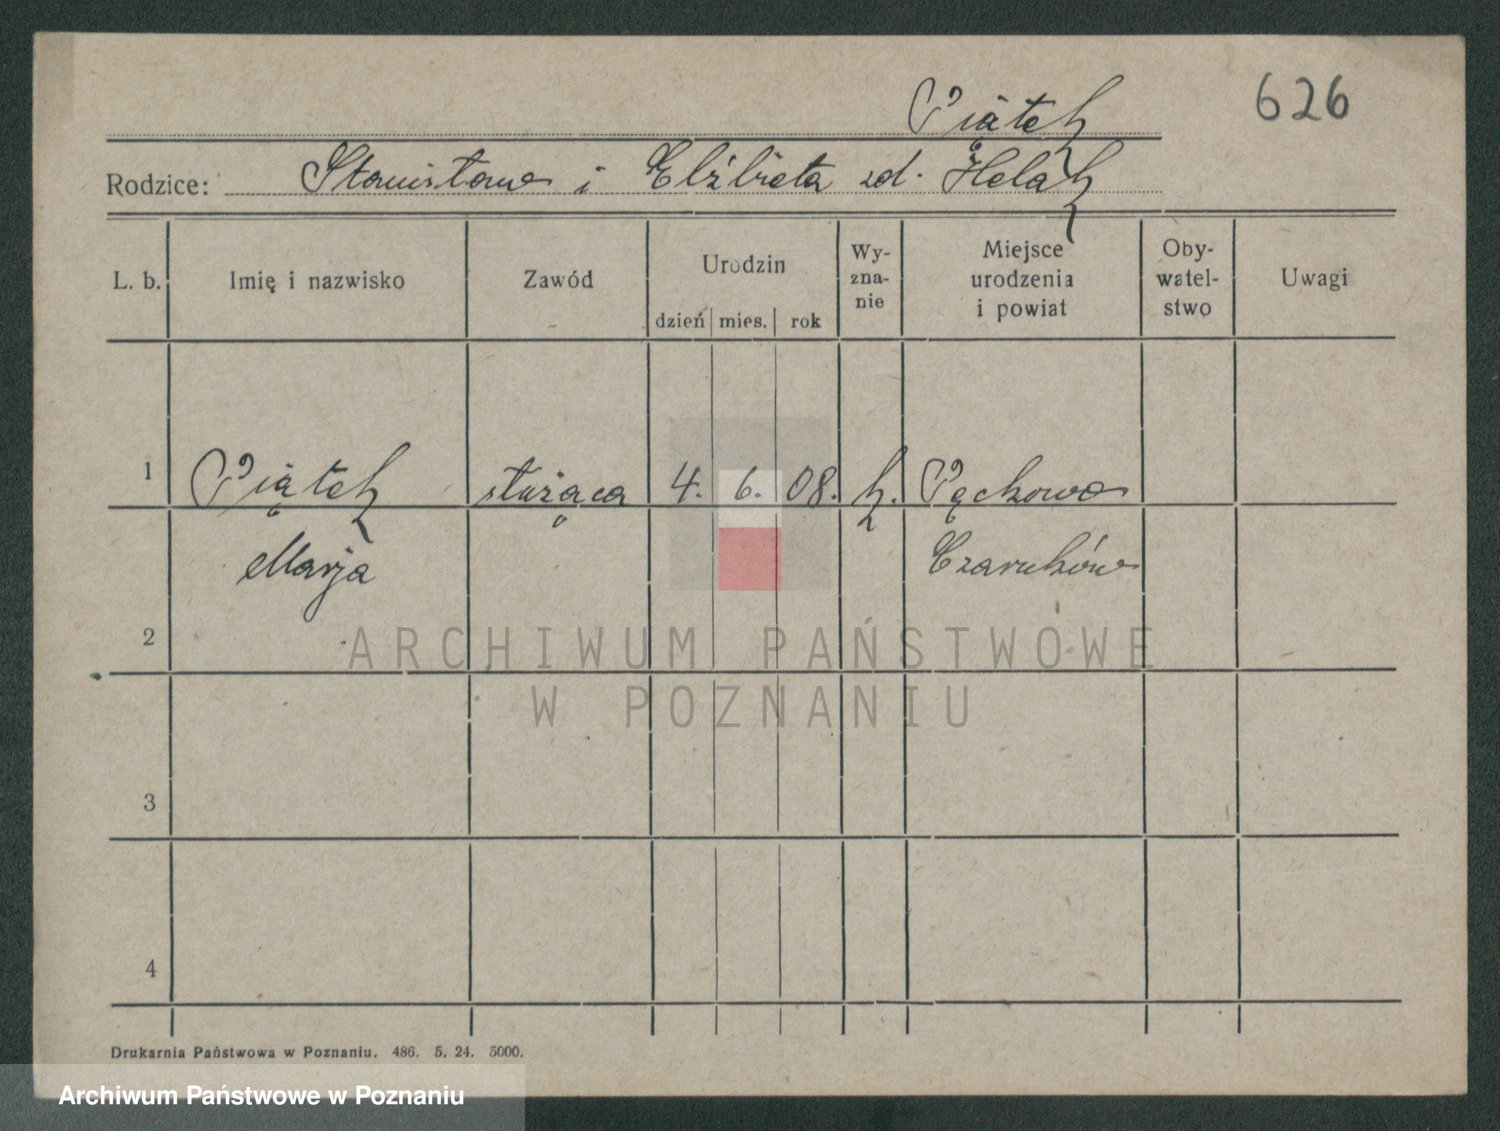 626
Piątek
Rodzice: Stanisława i Elżbieta zd.
L. b. Imię i nazwisko Zawód Urodzin dzień mies. rok Wy-zna-nie Miejsce urodzenia i powiat Oby-watel-stwo Uwagi
1 Piątek służąca 4. 6. 08. k.
Marja
2
3
4
Drukarnia Państwowa w Poznaniu. 486. 5. 24. 5000.
ARCHIWUM PAŃSTWOWE
W POZNANIU
Archiwum Państwowe w Poznaniu